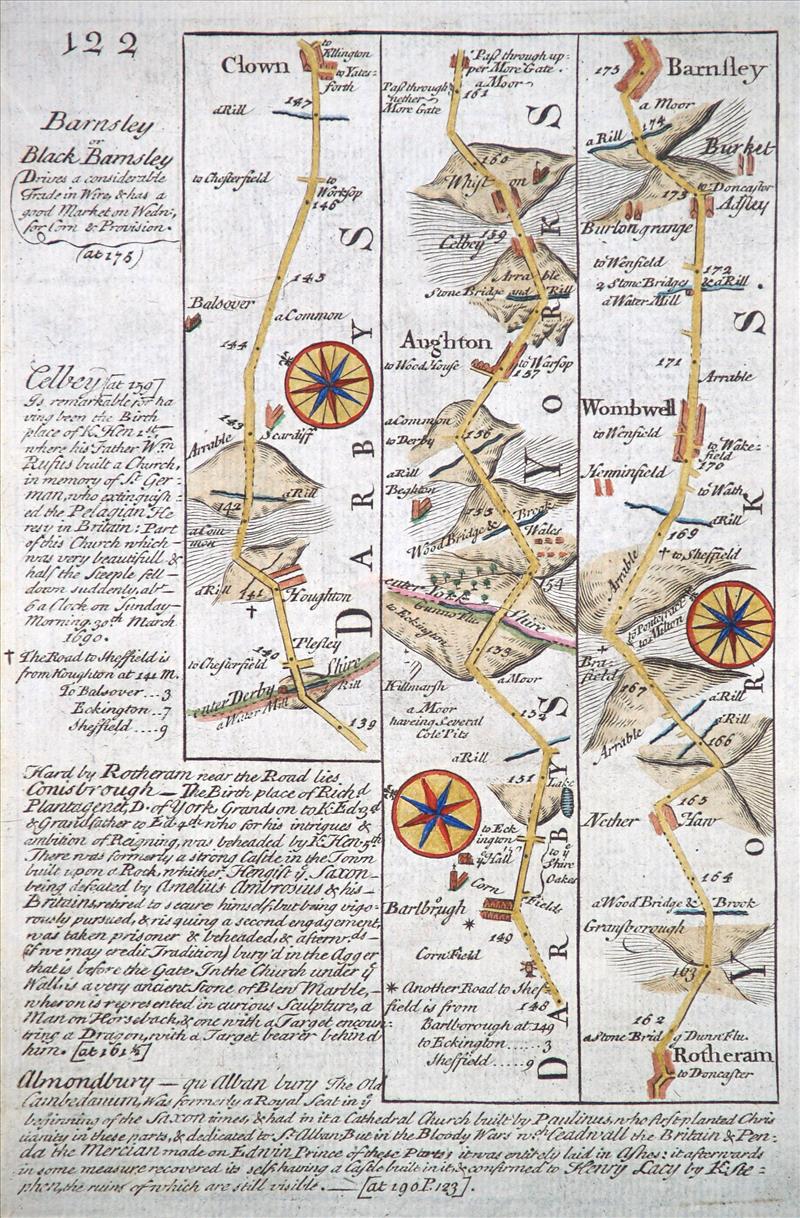 122
Barnsley
or
Black Barnsley
Drives a considerable
Trade in Wire, & has a
good Market on Wedn:
for Corn & Provision.
(at 175)
Celbey [at 159]
Is remarkable for ha
ving been the Birth
place of K. Hen. 1st.
where his Father Wm
Rufus built a Church,
in memory of St Ger-
man, who extinguish-
ed the Pelagian He
resy in Britain: Part
of this Church which
was very beautifull &
half the Steeple fell
down suddenly, abt
6 a Clock on Sunday
Morning 30th March
1690.
† The Road to Sheffield is
from Houghton at 141 M.
To Balsover... 3
Eckington... 7
Sheffield.... 9
Hard by Rotheram near the Road lies
Conisbrough — The Birth place of Richd
Plantagenet, D. of York, Grandson to K. Ed 3d
& Grandfather to Ed 4th who for his intrigues &
ambition of Reigning, was beheaded by K. Hen. 5th
There was formerly a strong Castle in the Town
built upon a Rock, whither Hengist ye Saxon
being defeated by Amelius Ambrosius & his
Britains, retired to secure himself, but being vigo-
rously pursued, & risquing a second engagement,
was taken prisoner & beheaded, & afterwds
(if we may credit Tradition) bury'd in the Agger
that is before the Gate. In the Church under ye
Wall is a very ancient Stone of Blew Marble,
wheron is represented in curious Sculpture, a
Man on Horseback, & one with a Target encoun-
tring a Dragon, with a Target bearer behind
him. [at 161½]
Almondbury — qu Alban bury The Old
Cambodunum, Was formerly a Royal Seat in ye
beginning of the Saxon times, & had in it a Cathedral Church built by Paulinus, who first planted Chris
tianity in these parts, & dedicated to St Alban, But in the Bloody Wars wch Ceadwall the Britain & Pen-
da the Mercian made on Edwin Prince of these Parts, it was entirely laid in Ashes: it afterwards
in some measure recovered its self having a Castle built in it, & confirmed to Henry Lacy by K. Ste-
phen, the ruins of which are still visible. — [at 190 P. 123].
Clown
to
Ellington
to Yates-
forth
147
a Rill
to Chesterfield
to
Worksop
146
145
Balsover
a Common
144
143
Scardiff
Arrable
a Rill
142
a Com
mon
a Rill
141
Houghton
†
Plesley
140
to Chesterfield
enter Derby Shire
Rill
a Water Mill
139
DARBYS
Pass through up-
per More Gate.
a Moor
Pass through
nether
More Gate
161
160
Whist on
159
Celbey
Arrable
Stone Bridge and Rill
Aughton
to Wood House
to Warsop
157
a Common
to Derby
156
a Rill
Beghton
155
Wood Bridge & Brook
Wales
154
enter York Shire
Gunno Flu
to Eckington
153
a Moor
Killmarsh
a Moor
having Several
Cole Pits
152
a Rill
151
Lake
to Eck
ington
to ye
Shire
Oakes
ye Hall
Corn
Fields
Barlbrugh
149
*
Corn Field
* Another Road to Shef-
field is from
148
Barlborough at 149
to Eckington...... 3
Sheffield..... 9
YORKS
DARBYS
175
Barnsley
a Moor
a Rill
174
Burket
to Doncaster
173
Adsley
Burton grange
to Wenfield
172
2 Stone Bridges & a Rill
a Water Mill
171
Arrable
Wombwell
to Wenfield
to Wake-
field
170
Henninfield
to Wath
a Rill
169
† to Sheffield
Arrable
to Pontefract
to Milton
Bra-
field
167
a Rill
a Rill
Arrable
166
165
Nether Haw
164
a Wood Bridge & Brook
Grasborough
163
162
a Stone Bridg Dunn Flu.
Rotheram
to Doncaster
YORKS.